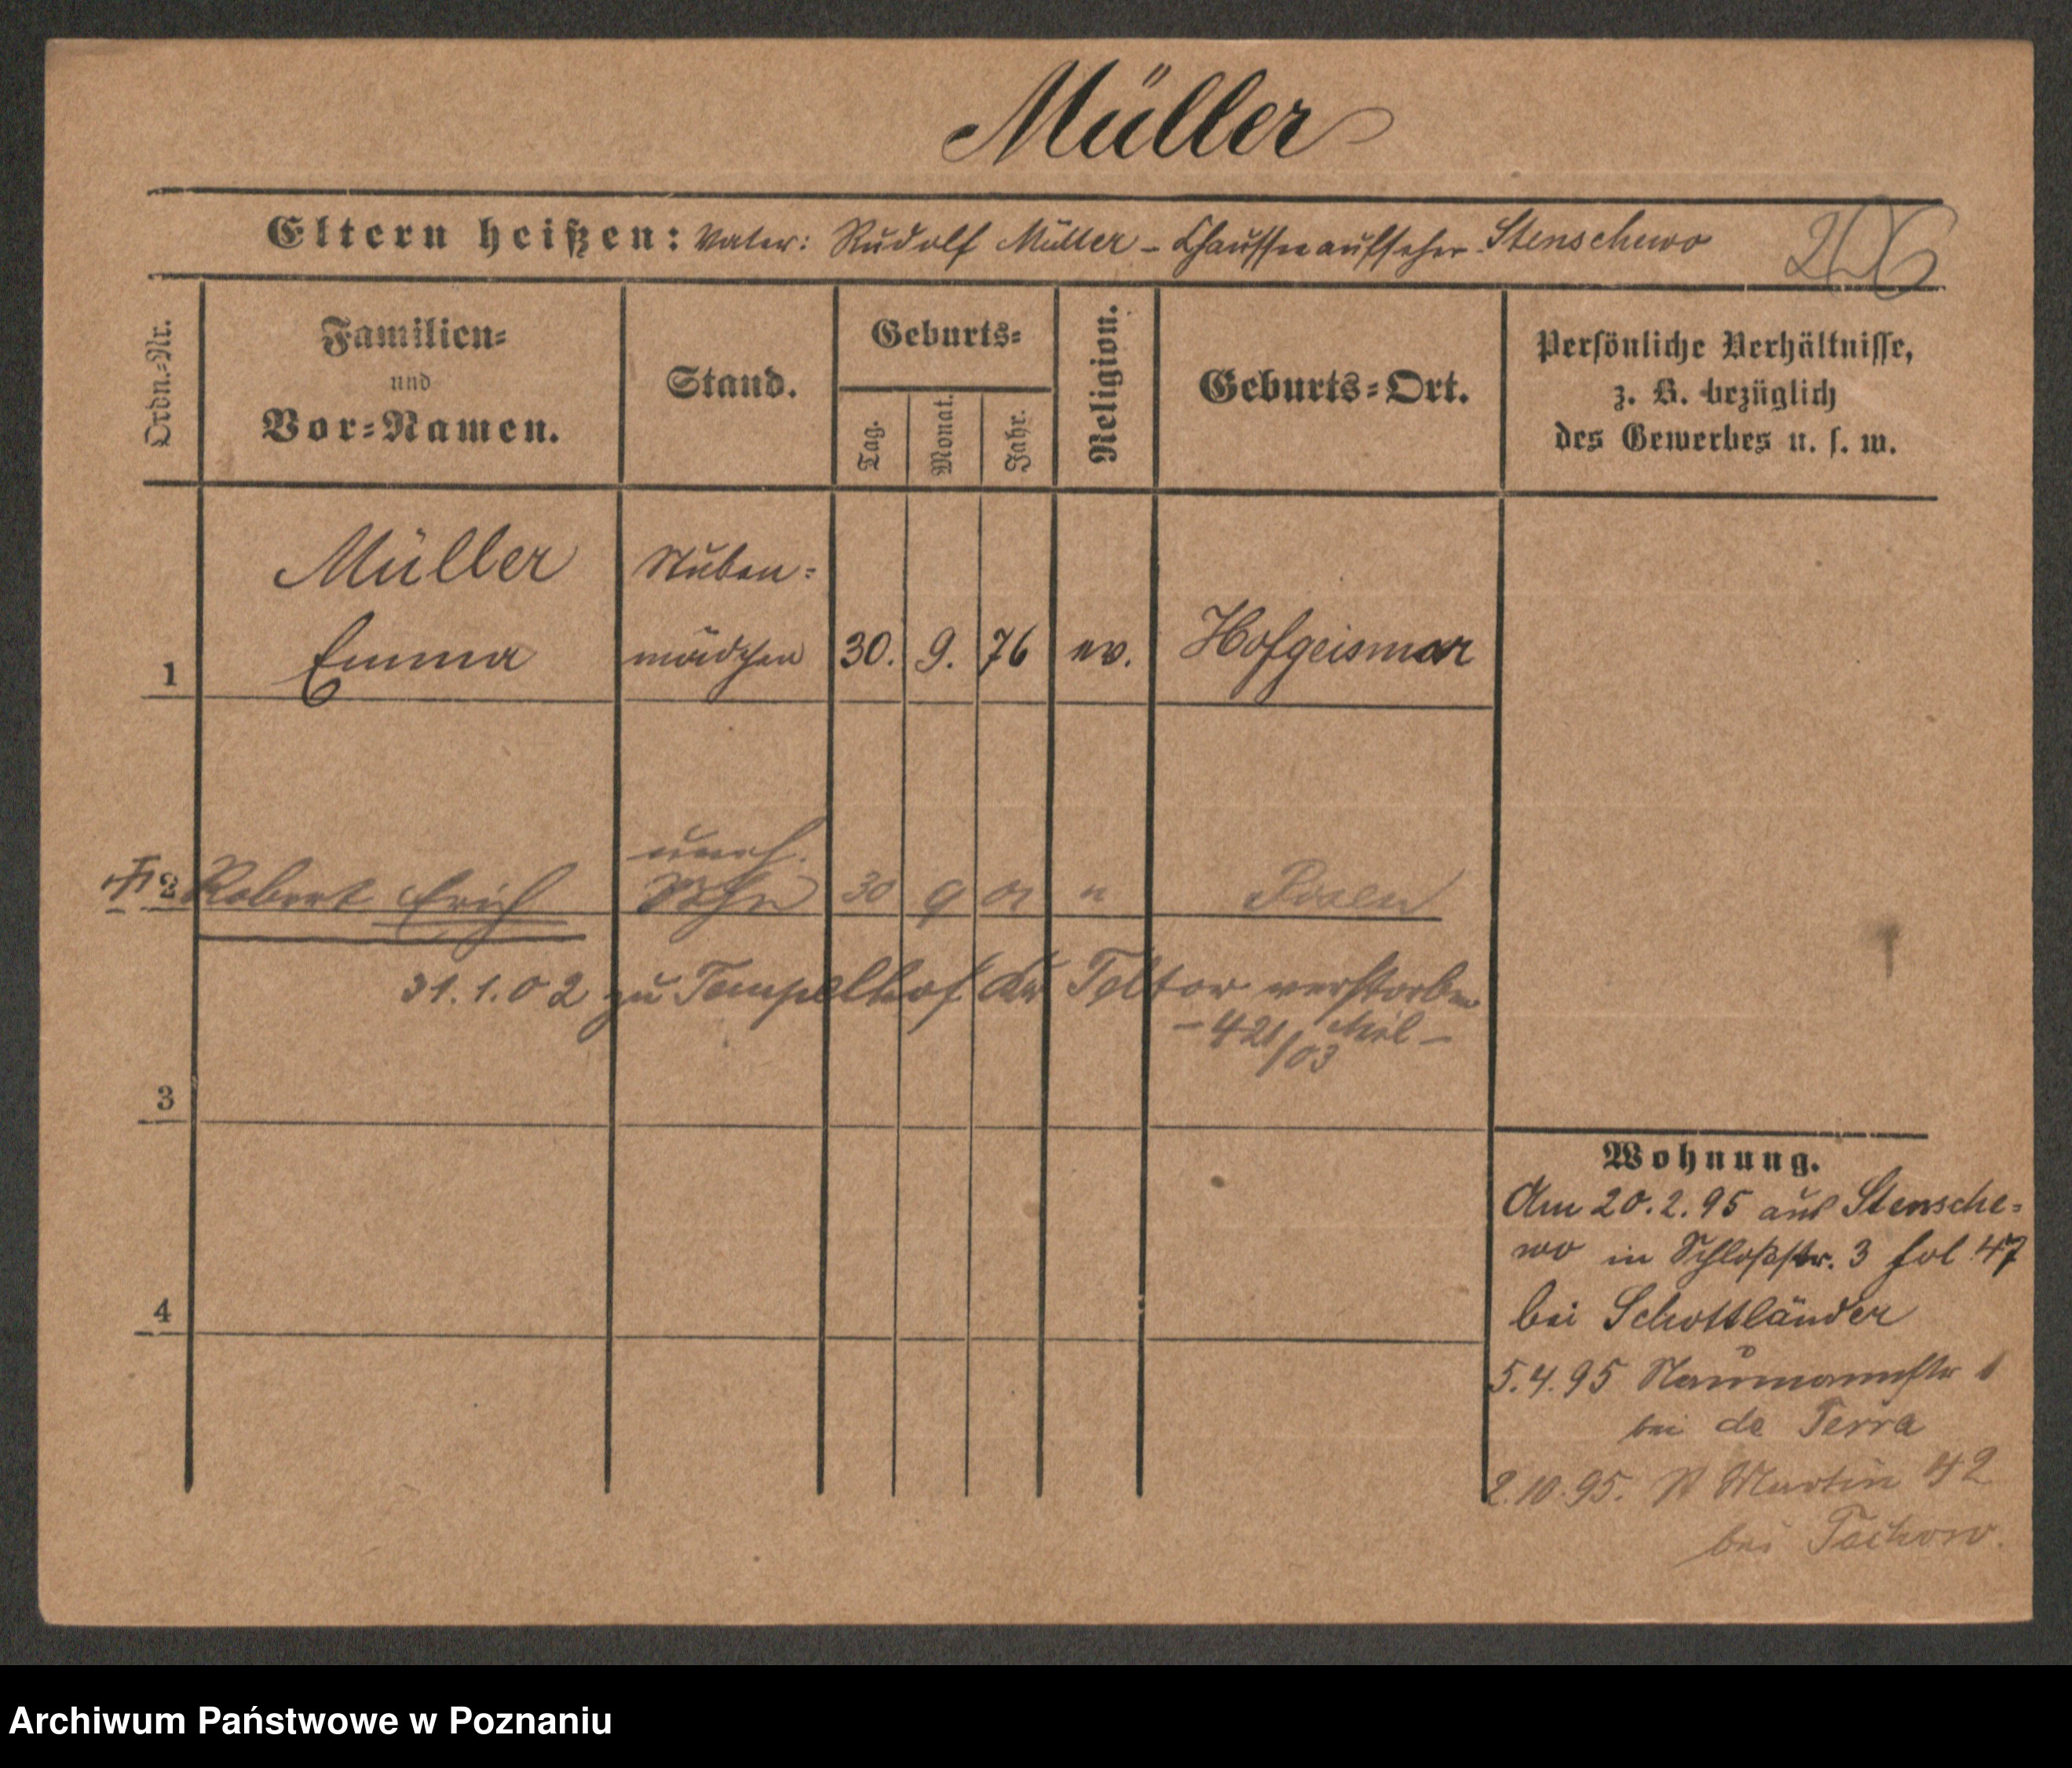 Müller
Eltern heißen: Vater: Rudolf Müller – Chausseeaufseher Stenschewo
Ordn.-Nr.
Familien=
und
Vor=Namen.
Stand.
Geburts=
Tag.
Monat.
Jahr.
Religion.
Geburts=Ort.
Persönliche Verhältnisse,
z. B. bezüglich
des Gewerbes u. s. w.
Müller Stuben=
1 Emma mädchen 30. 9. 76 ev. Hofgeismar
uneh.
2 Robert Erich Sohn 30 9 01 " Posen
31.1.02 zu Tempelhof Kr Teltow verstorben
– 421/03 Mil –
3
4
Wohnung.
Am 20.2.95 aus Stensche=
wo in Schloßstr. 3 fol 47
bei Schottländer
5.4.95 Naumannstr 1
bei de Terra
2.10.95. St Martin 42
bei
Archiwum Państwowe w Poznaniu